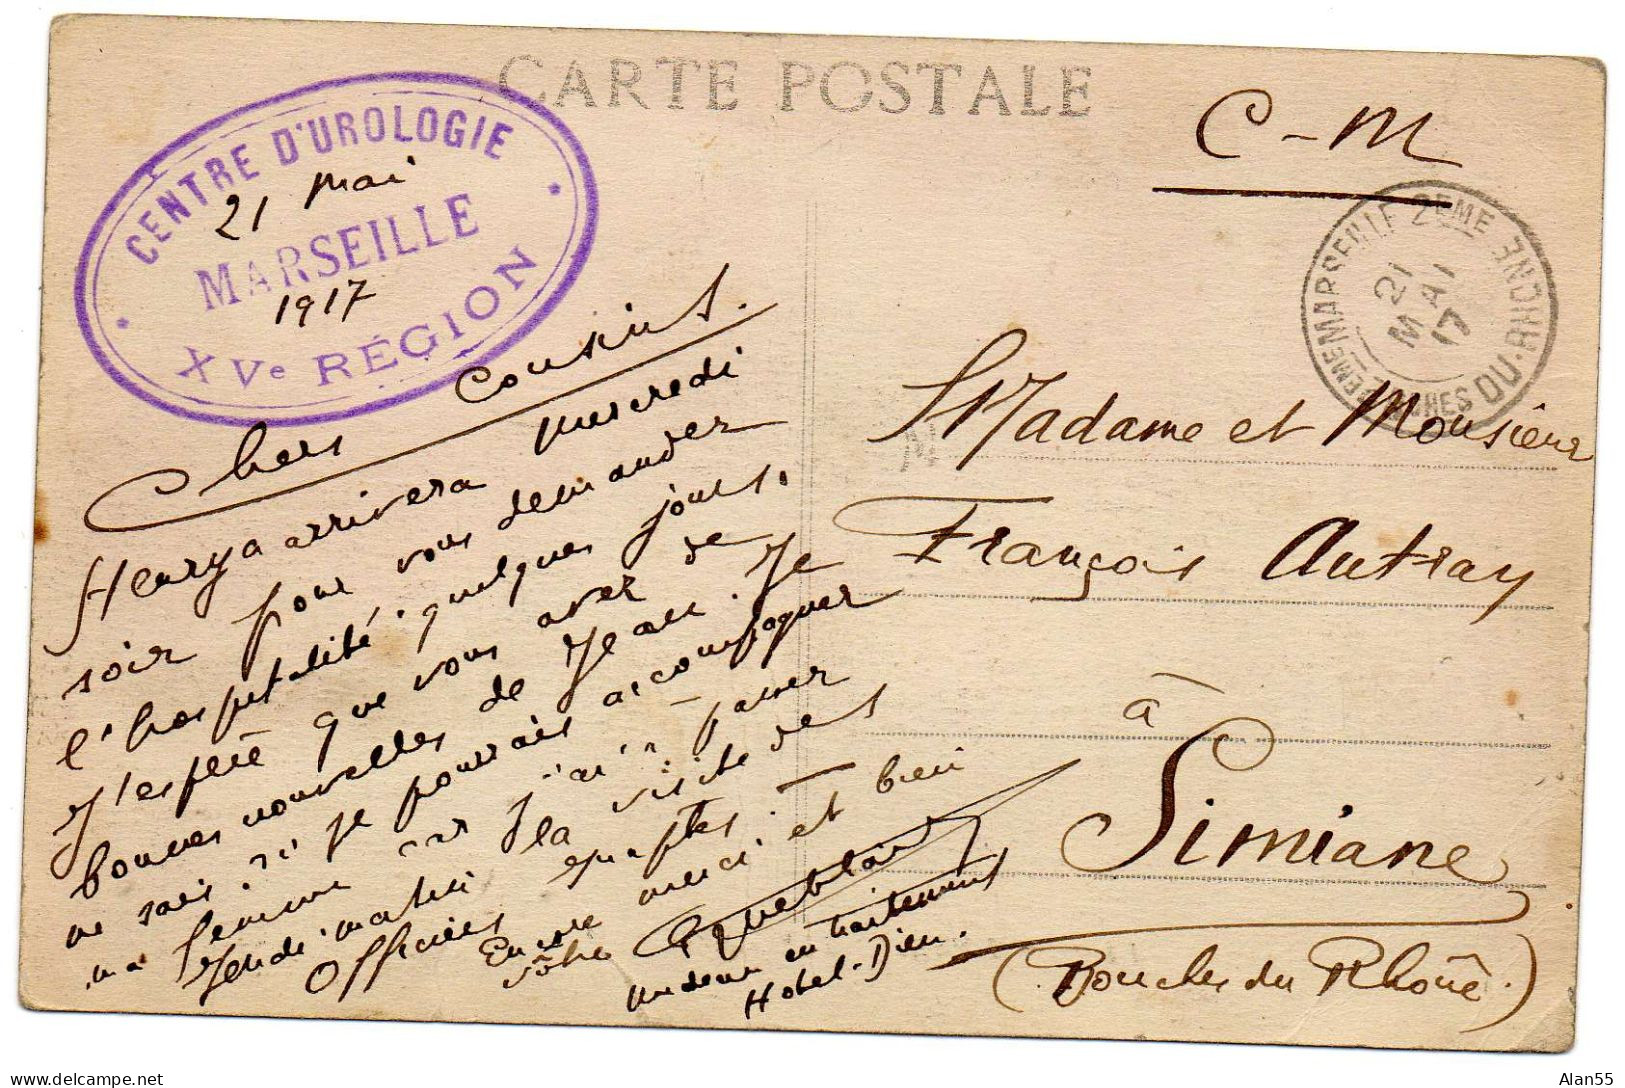 CARTE POSTALE
C-M
CENTRE D'UROLOGIE
21 Mai
MARSEILLE
1917
XVe RÉGION
MARSEILLE 2EME
21
MAI
17
BOUCHES DU-RHÔNE
Chers Cousins.
Henry arrivera mercredi
soir pour vous demander
l'hospitalité. quelques jours.
J'espère que vous avez de
bonnes nouvelles de Jean. Je
ne sais si je pourrais accompagner
ma femme car j'ai à passer
Jeudi matin la visite des
Officiers
Encore merci et bien
vôtre
en traitement
Hotel-Dieu.
Madame et Monsieur
François Autray
à
Simiane
(Bouches du Rhône)
Alan55
delcampe.net